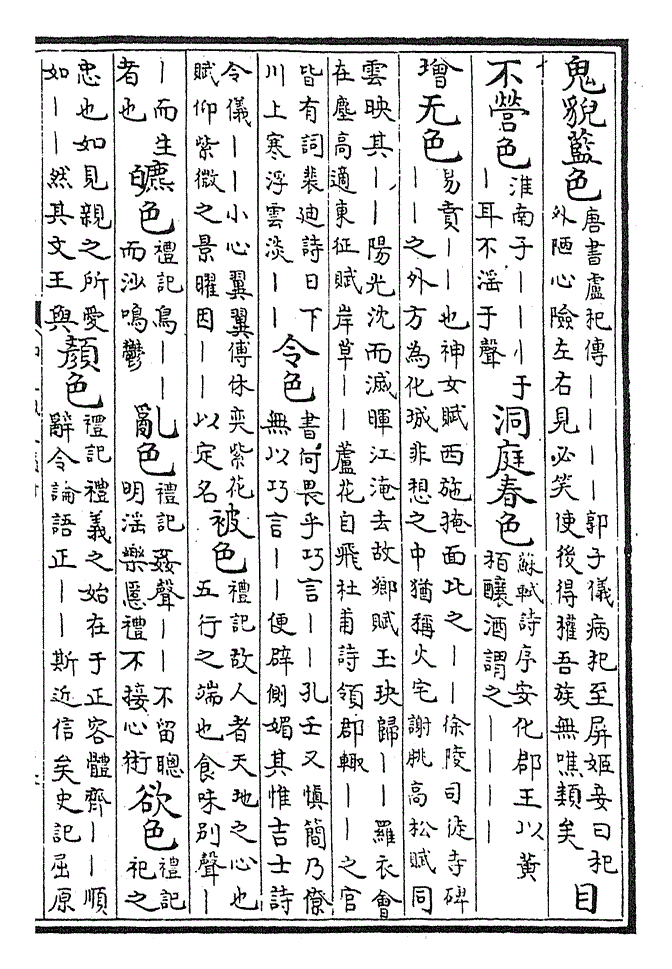 鬼貌藍色
唐書盧杞傳丨丨丨丨郭子儀病杞至屏姬妾曰杞
外陋心險左右見必笑使後得權吾族無噍類矣
目
不營色
淮南子丨丨小于
丨耳不滛于聲
洞庭春色
蘇軾詩序安化郡王以黄
柑釀酒謂之丨丨丨丨
增无色
易賁丨丨也神女賦西施掩面比之丨丨徐陵司徒寺碑
丨丨之外方為化城非想之中猶稱火宅謝朓高松賦同
雲映其丨丨陽光沈而滅暉江淹去故鄉賦玉玦歸丨丨羅衣會
在塵高適東征賦岸草丨丨蘆花自飛杜甫詩領郡輙丨丨之官
皆有詞裴迪詩日下
川上寒浮雲淡丨丨
令色
書何畏乎巧言丨丨孔壬又慎簡乃僚
無以巧言丨丨便辟側媚其惟吉士詩
令儀丨丨小心翼翼傅休奕紫花
賦仰紫微之景曜因丨丨以定名
被色
禮記故人者天地之心也
五行之端也食味别聲丨
丨而生
者也
皫色
禮記鳥丨丨
而沙鳴鬱
亂色
禮記姦聲丨丨不留聰
明滛樂慝禮不接心術
欲色
禮記
祀之
忠也如見親之所愛
如丨丨然其文王與
顔色
禮記禮義之始在于正容體齊丨丨順
辭令論語正丨丨斯近信矣史記屈原